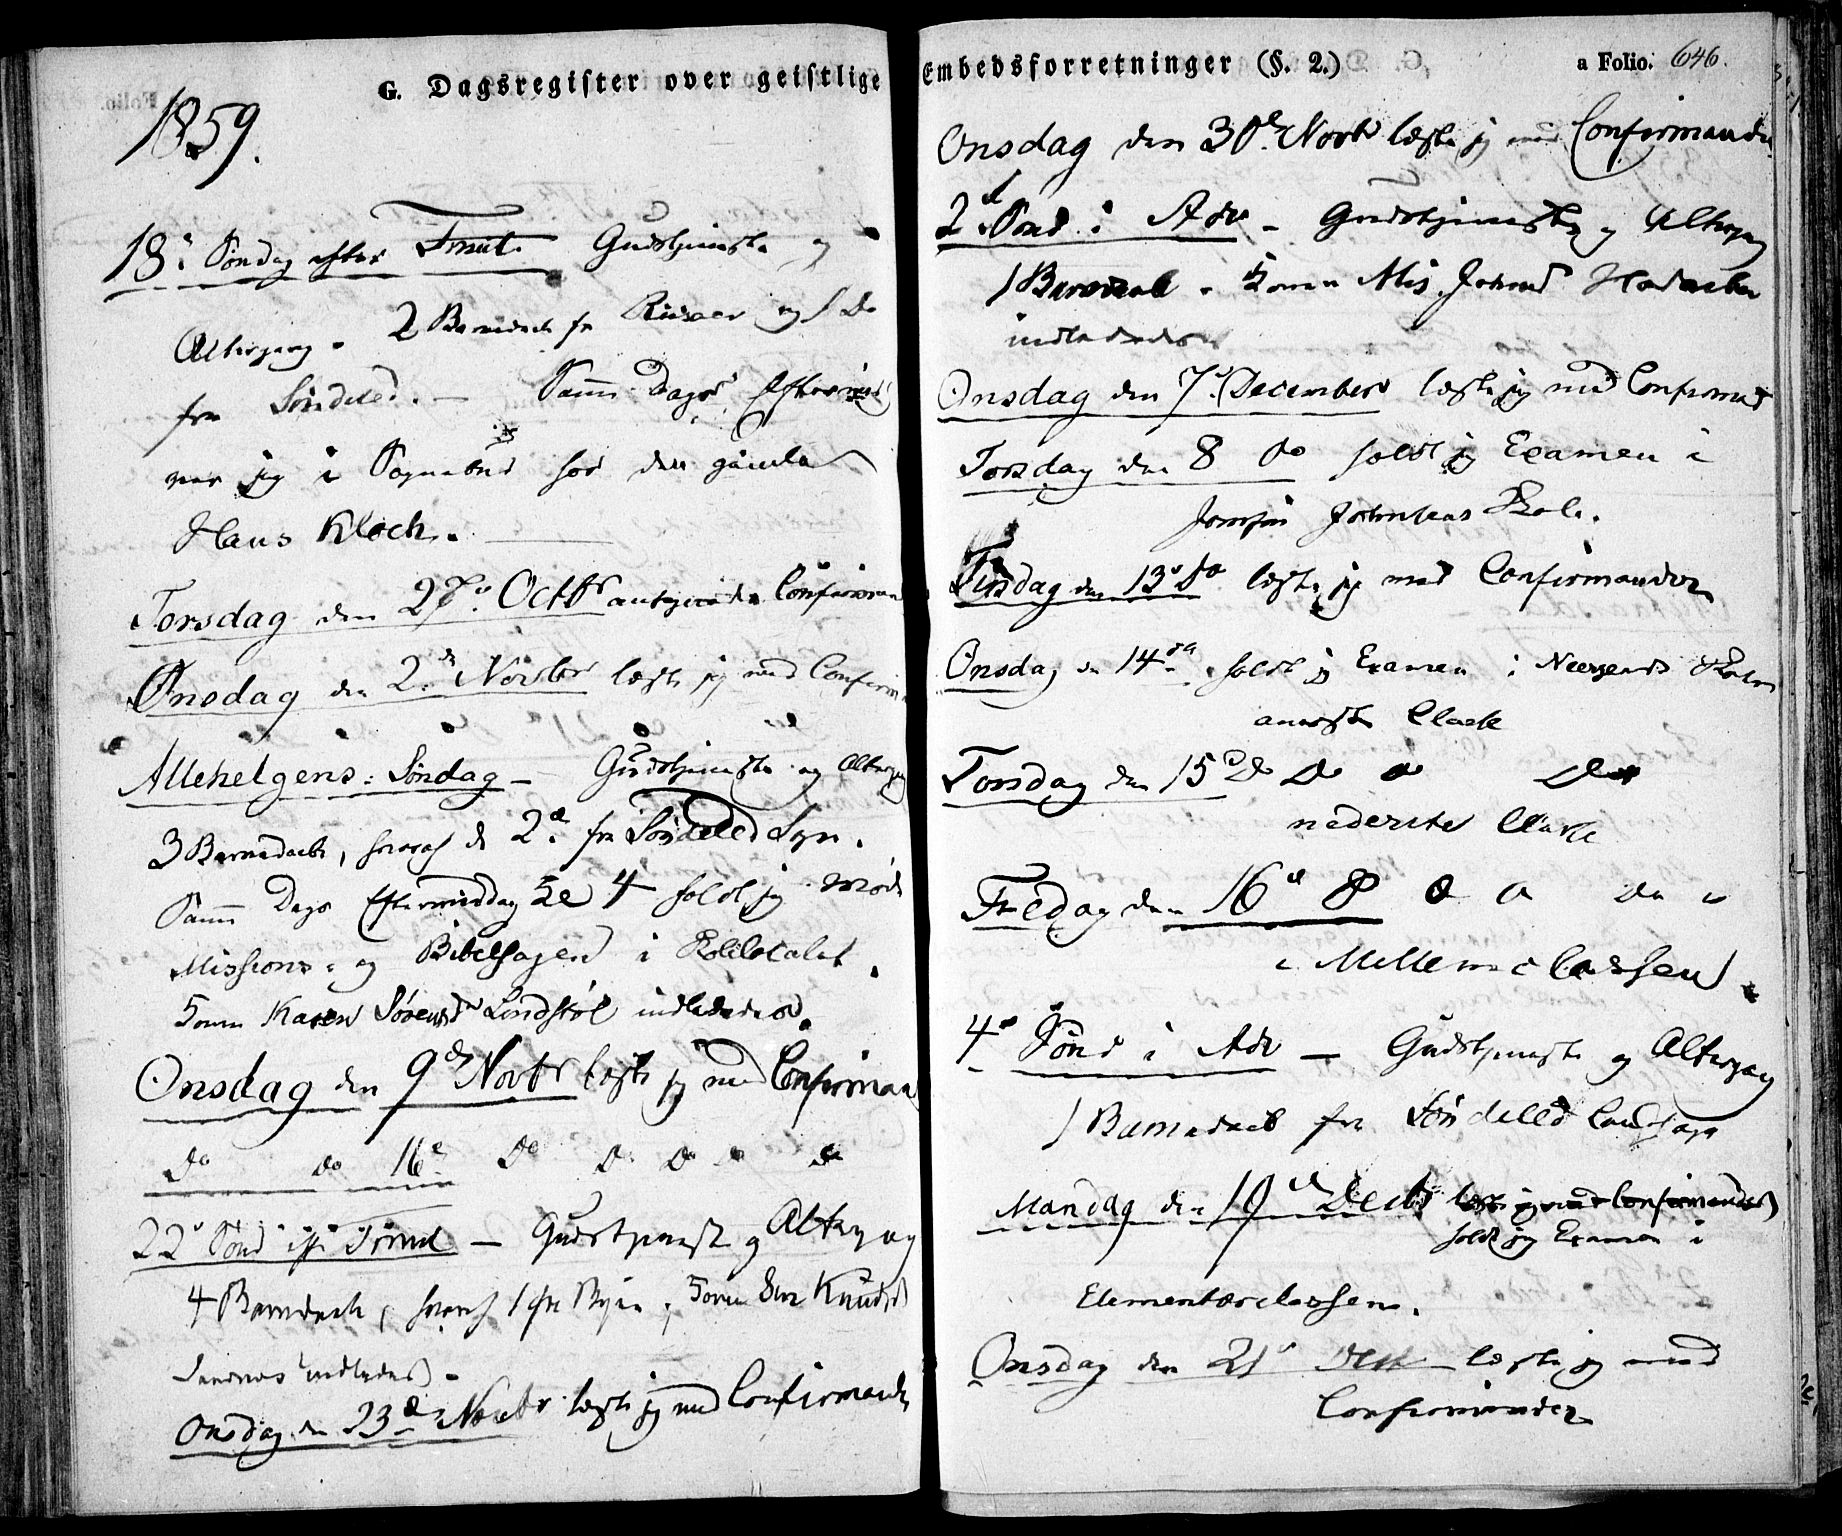 G. Dagsregister over geistlige Embedsforretninger (§. 2.) a Folio. 646.
1859.
18de Søndag efter Trinit. Gudstjeneste og
Altergang. 2 Barnedaab fra Risøer og 1 Do
fra Søndeled. — Samme Dags Efterm.
var jeg i Sognebud hos den gamle
Hans Kloch.
Torsdag den 27de Octbr antegnede Confirman
Onsdag den 2de Novbr læste jeg med Confirm
Allehelgens-Søndag — Gudstjeneste og Alterg
3 Barnedaab, hvoraf de 2de fra Søndeled Sogn.
Samme Dags Eftermiddag Kl 4 holdt jeg Møde
Missions- og Bibelsagen i Skolelocalet.
Konen Karen Sørensdtr Lindstøl indlededes.
Onsdag den 9de Novbr læste jeg med Confirman
Do do 16de Do Do Do Do
22de Sønd eft Trinit — Gudstjeneste og Altergang
4 Barnedaab, hvoraf 1 fra Byen, Konen Knuds
indledes.
Onsdag den 23de Novbr læste jeg med Confirmande
Onsdag den 30te Novbr læste jeg med Confirmande
2d Sønd i Adv — Gudstjeneste og Altergang
1 Barnedaab. Konen
indlededes
Onsdag den 7de December læste jeg med Confirmand
Torsdag den 8 do holdt jeg Examen i
Jomfru Johnsens Skole.
Tirsdag den 13de do læste jeg med Confirmander
Onsdag den 14de holdt jeg Examen i Skole
øverste Classe
Torsdag den 15de Do Do Do
nederste Classe
Fredag den 16de Do
i Mellemclassen.
4de Sønd i Adv — Gudstjeneste og Altergang
1 Barnedaab fra Søndeled Landsogn
Mandag den 19de Decbr læste jeg med Confirmander
holdt jeg Examen i
Elementærclassen.
Onsdag den 21de Decbr læste jeg med
Confirmander